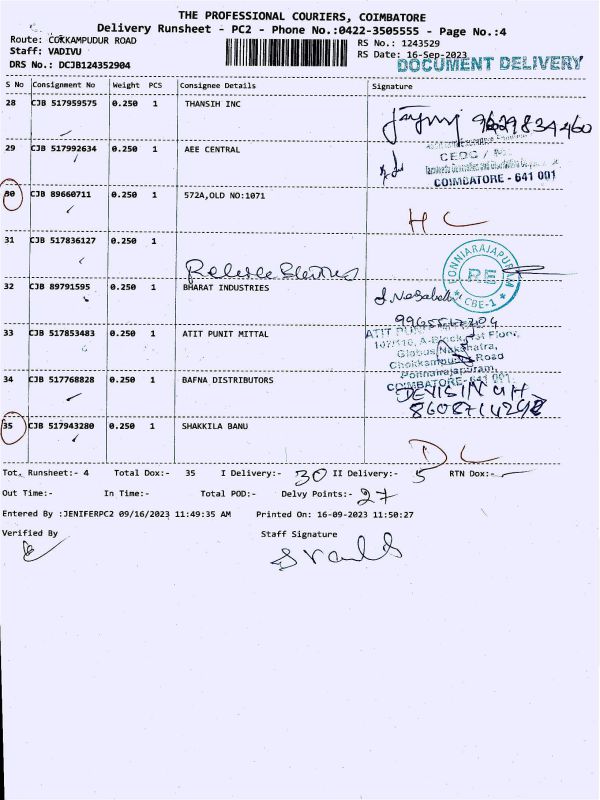 THE PROFESSIONAL COURIERS, COIMBATORE
Delivery Runsheet - PC2 - Phone No.:0422-3505555 - Page No.:4
Route: COKKAMPUDUR ROAD
RS No.: 1243529
Staff: VADIVU
RS Date: 16-Sep-2023
DRS No.: DCJB124352904
DOCUMENT DELIVERY
S No Consignment No Weight PCS Consignee Details Signature
28 CJB 517959575 0.250 1 THANSIH INC
9629834460
29 CJB 517992634 0.250 1 AEE CENTRAL
CEDC /
COIMBATORE - 641 001
30 CJB 89660711 0.250 1 572A,OLD NO:1071
H C
31 CJB 517836127 0.250 1
PONNIARAJAPURAM
RE
CBE-1
32 CJB 89791595 0.250 1 BHARAT INDUSTRIES
33 CJB 517853483 0.250 1 ATIT PUNIT MITTAL
ATIT PUNIT
107/110, A-Block, 1st Floor,
Globus Nakshatra,
Chokkampudur Road
Ponnairajapuram,
COIMBATORE- 641 001.
34 CJB 517768828 0.250 1 BAFNA DISTRIBUTORS
35 CJB 517943280 0.250 1 SHAKKILA BANU
D L
Tot. Runsheet:- 4 Total Dox:- 35 I Delivery:- 30 II Delivery:- 5 RTN Dox:-
Out Time:- In Time:- Total POD:- Delvy Points:- 27
Entered By :JENIFERPC2 09/16/2023 11:49:35 AM Printed On: 16-09-2023 11:50:27
Verified By Staff Signature